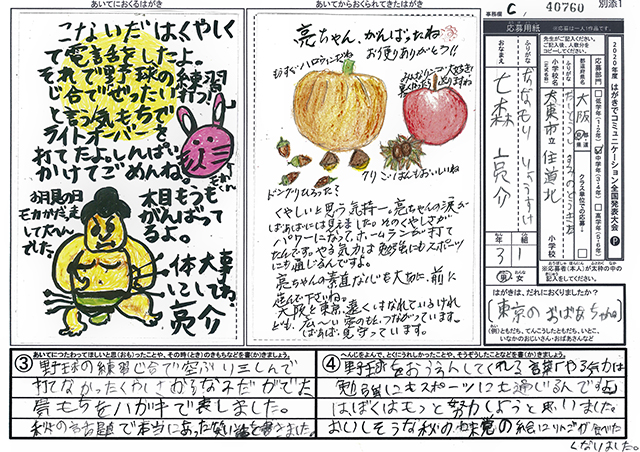 あいてにおくるはがき
こないだはくやしく
て電話をしたよ。
それで野球の練習
じ合でぜったい打つ!
と言う気もちで
ライトオーバーを
打てたよ。しんぱい
かけてごめんね。
お月見の日
大へん
でした。
本目もうも
がんばって
るよ。
体大事
にしてね。
亮介
あいてからおくられてきたはがき
亮ちゃん、がんばったね
お便りありがとう!!
もうすぐハロウィンだね
みんなリンゴ大好き!
ドングリひろった?
クリごはんもおいしいね
くやしいと思う気持ー。亮ちゃんの涙が
ばあばには見えました。そのくやしさが
パワーになって、ホームランが打て
たんです。やる気力は勉強にもスポーツ
にも通じるんですよ。
亮ちゃんの素直な心も大切に、前に
進んで下さいね。
大阪と東京、遠くはなれているけれ
ども、広〜い空のもと、つながっています。
ばあばは、見守っています。
事務欄
C,
40760
別添1
応募用紙
※応募は一人1作品です。
2020年度 はがきでコミュニケーション全国発表大会
応募部門
低学年(1・2年)
中学年(3・4年)
高学年(5・6年)
クラス単位での応募
都道府県名
大阪
小学校名
大東市立 住道北
小学校
ふりがな
おなまえ
ななもり りょうすけ
七森 亮介
3年1組
男 女
※応募者(本人)が太枠の中の
記入をしてください。
はがきは、だれにおくりましたか?
東京のおばあちゃん
(例)ともだち、てんこうしたともだち、いとこ、
いなかのおじいさん・おばあさんなど
③
あいてにつたわってほしいと思(おも)ったことや、その時(とき)のきもちなどを書(か)きましょう。
野球の練習じ合で空ぶり三しんで
打てなかったくやしさとなみだがでた
気もちをハガキで表しました。
④
へんじをよんで、とくにうれしかったことや、そうぞうしたことなどを書(か)きましょう。
野球をおうえんしてくれる言葉「やる気力は
勉強にもスポーツにも通じるんですよ」
ぼくはもっと努力しようと思いました。
おいしそうな秋の味覚の絵にりんごが食べた
くなりました。